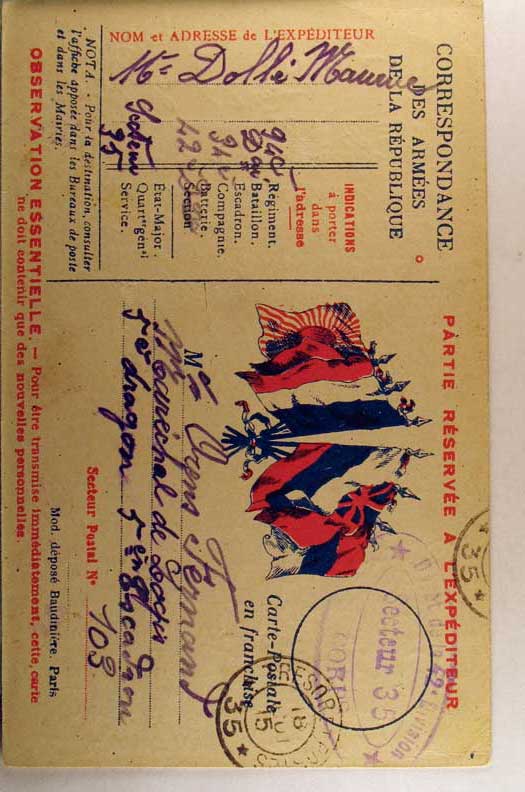 CORRESPONDANCE
DES ARMÉES
DE LA RÉPUBLIQUE
PARTIE RÉSERVÉE A L'EXPÉDITEUR
NOM et ADRESSE de L'EXPÉDITEUR
Mr Dollé Maurice
INDICATIONS
à porter
dans
l'adresse
94e Régiment.
Bon Bataillon.
Escadron.
Compagnie.
Batterie.
Section
42
État-Major.
Quartr génal
Service.
Secteur
35
NOTA. - Pour la destination, consulter
l'affiche apposée dans les Bureaux de poste
et dans les Mairies.
Carte-Postale
en franchise
Mr Orens Fernand
Maréchal de Logis
5e dragon 5e Escadron
Secteur Postal No 103
Mod. déposé Baudinière. Paris
OBSERVATION ESSENTIELLE. — Pour être transmise immédiatement, cette carte
ne doit contenir que des nouvelles personnelles.
Secteur 35
Division
TRESOR
18
15
* 35 *
35 *